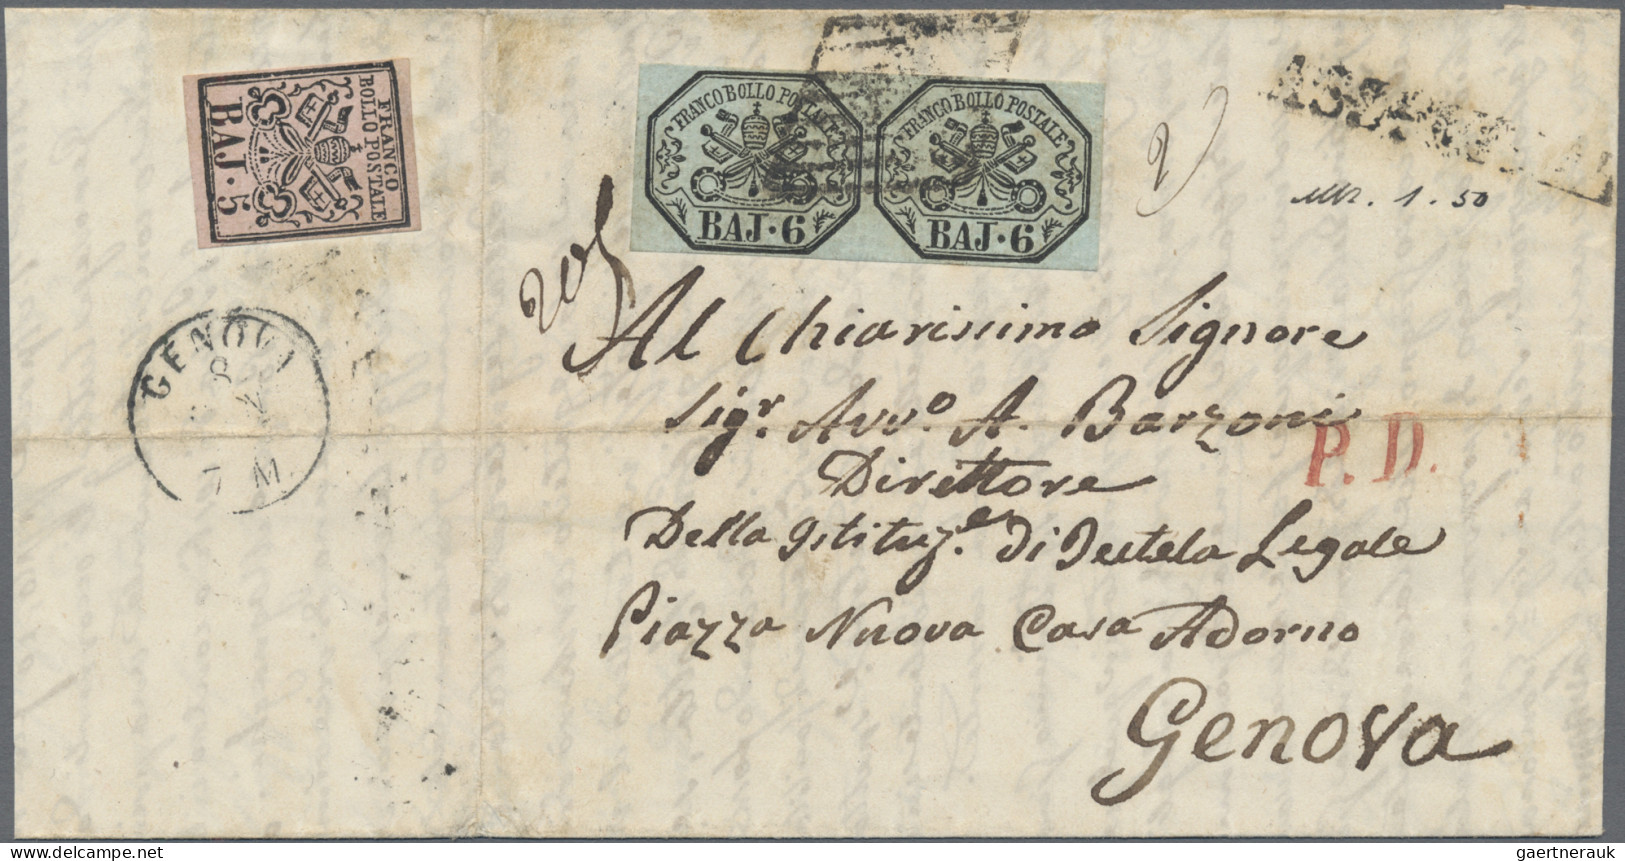 FRANCO
BOLLO POSTALE
BAJ · 5
FRANCO BOLLO POSTALE
BAJ · 6
FRANCO BOLLO POSTALE
BAJ · 6
1 . 50
GENOVA
8
7 M
Al Chiarissimo Signore
Sigr. Avvo. A. Barzoni
P. D.
Direttore
Della Istituz.e Di Tutela Legale
Piazza Nuova Casa Adorno
Genova
www.delcampe.net
gaertnerauk